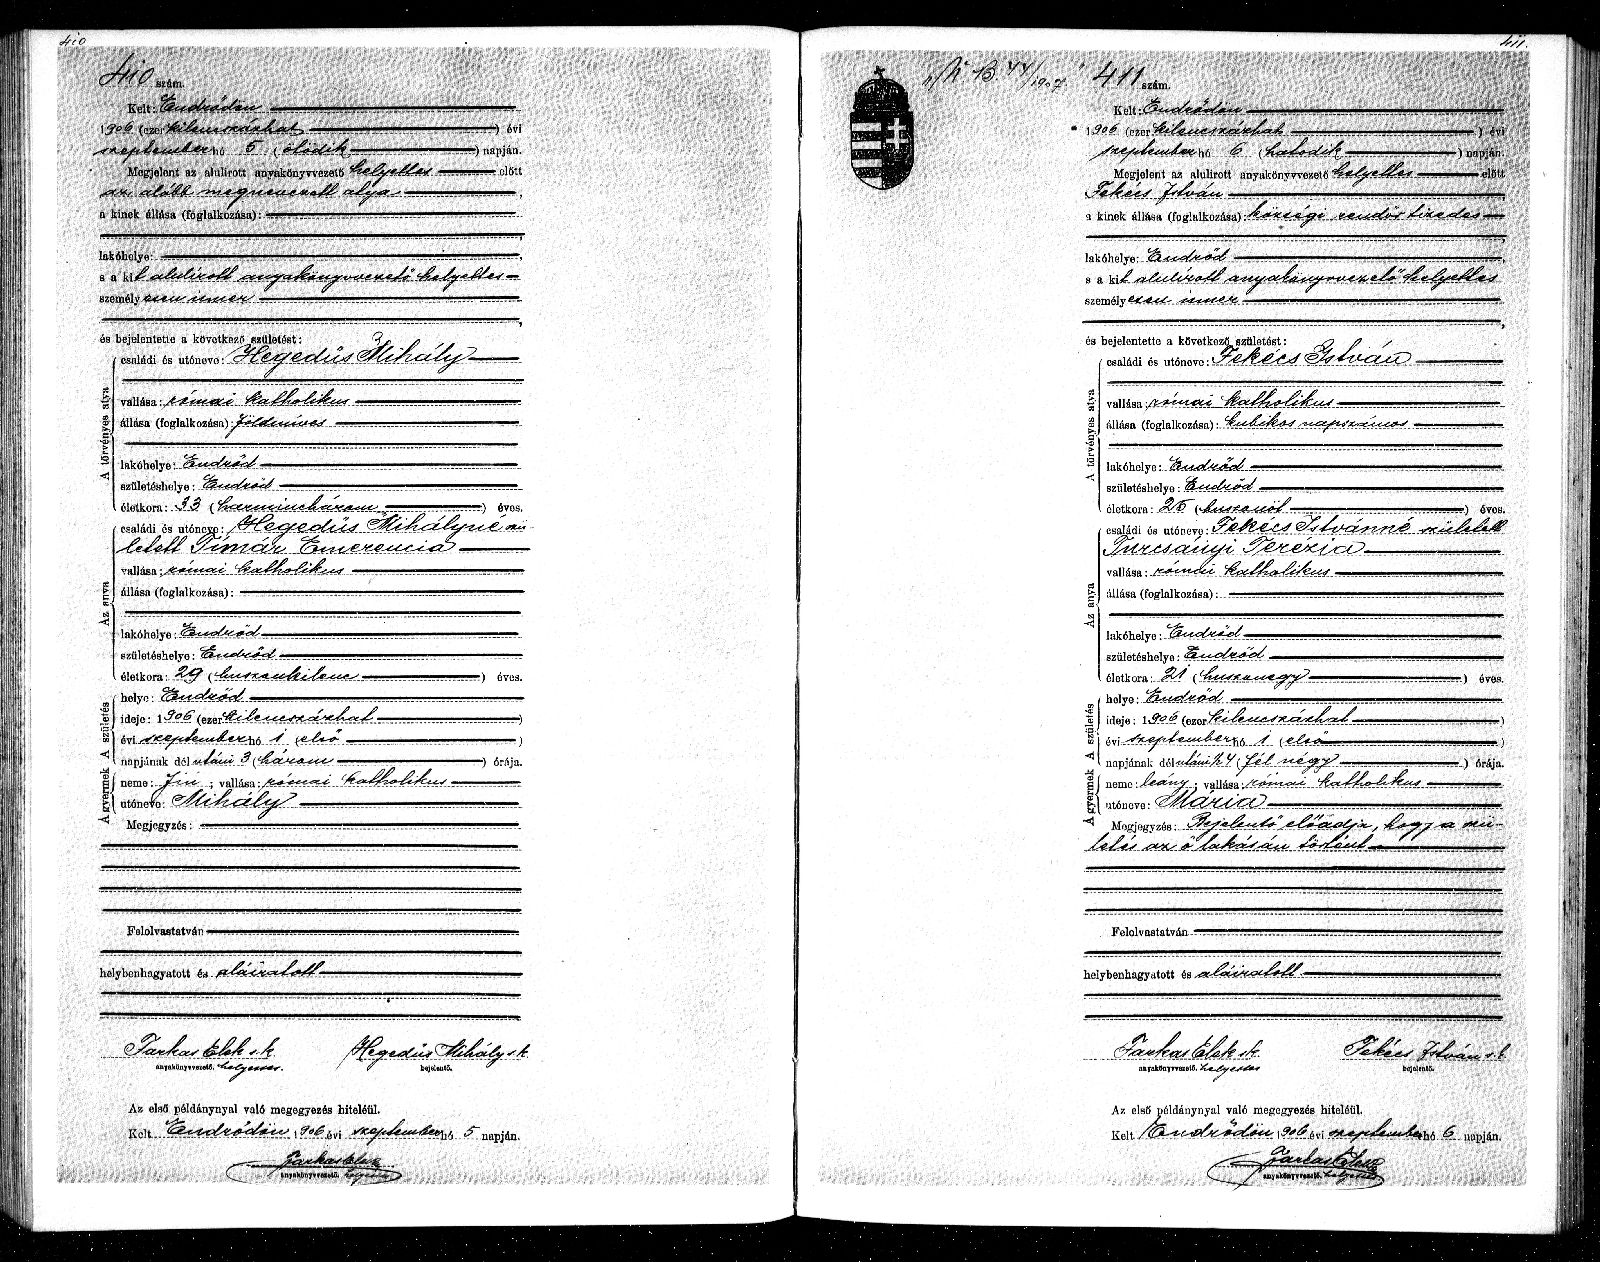 410
410 szám.
Kelt: Endrődön
1906 (ezer kilencszázhat) évi
szeptember hó 5 (ötödik) napján.
Megjelent az alulirott anyakönyvvezető helyettes előtt
az alább megnevezett atya,
a kinek állása (foglalkozása):
lakóhelye:
s a kit alulirott anyakönyvvezető helyettes
személyesen ismer
és bejelentette a következő születést:
A törvényes atya
családi és utóneve: Hegedüs Mihály
vallása: római katholikus
állása (foglalkozása): földmíves
lakóhelye: Endrőd
születéshelye: Endrőd
életkora: 33 (harminchárom) éves.
Az anya
családi és utóneve: Hegedüs Mihályné szü-
letett Tímár Emerencia
vallása: római katholikus
állása (foglalkozása):
lakóhelye: Endrőd
születéshelye: Endrőd
életkora: 29 (huszonkilenc) éves.
A születés
helye: Endrőd
ideje: 1906 (ezer kilencszázhat)
évi szeptember hó 1 (első)
napjának délutáni 3 (három) órája.
A gyermek
neme: fiú; vallása: római katholikus
utóneve: Mihály
Megjegyzés:
Felolvastatván
helybenhagyatott és aláiratott
Farkas Elek s.k. Hegedüs Mihály s.k.
anyakönyvvezető. helyettes. bejelentő.
Az első példánynyal való megegyezés hiteléül.
Kelt Endrődön 1906 évi szeptember hó 5 napján.
Farkas Elek
anyakönyvvezető. helyettes
411.
1907.
411 szám.
Kelt: Endrődön
1906 (ezer kilencszázhat) évi
szeptember hó 6 (hatodik) napján.
Megjelent az alulirott anyakönyvvezető helyettes előtt
Fekécs István
a kinek állása (foglalkozása): községi rendőr tizedes
lakóhelye: Endrőd
s a kit alulirott anyakönyvvezető helyettes
személyesen ismer
és bejelentette a következő születést:
A törvényes atya
családi és utóneve: Fekécs István
vallása: római katholikus
állása (foglalkozása): kubikos napszámos
lakóhelye: Endrőd
születéshelye: Endrőd
életkora: 25 (huszonöt) éves.
Az anya
családi és utóneve: Fekécs Istvánné született
Turcsányi Terézia
vallása: római katholikus
állása (foglalkozása):
lakóhelye: Endrőd
születéshelye: Endrőd
életkora: 21 (huszonegy) éves.
A születés
helye: Endrőd
ideje: 1906 (ezer kilencszázhat)
évi szeptember hó 1 (első)
napjának délutáni ½4 (fél négy) órája.
A gyermek
neme: leány; vallása: római katholikus
utóneve: Mária
Megjegyzés: Bejelentő előadja, hogy a szü-
letés az ő lakásán történt
Felolvastatván
helybenhagyatott és aláiratott
Farkas Elek sk. Fekécs István s.k.
anyakönyvvezető. helyettes bejelentő.
Az első példánynyal való megegyezés hiteléül.
Kelt Endrődön 1906 évi szeptember hó 6 napján.
Farkas Elek
anyakönyvvezető. helyettes